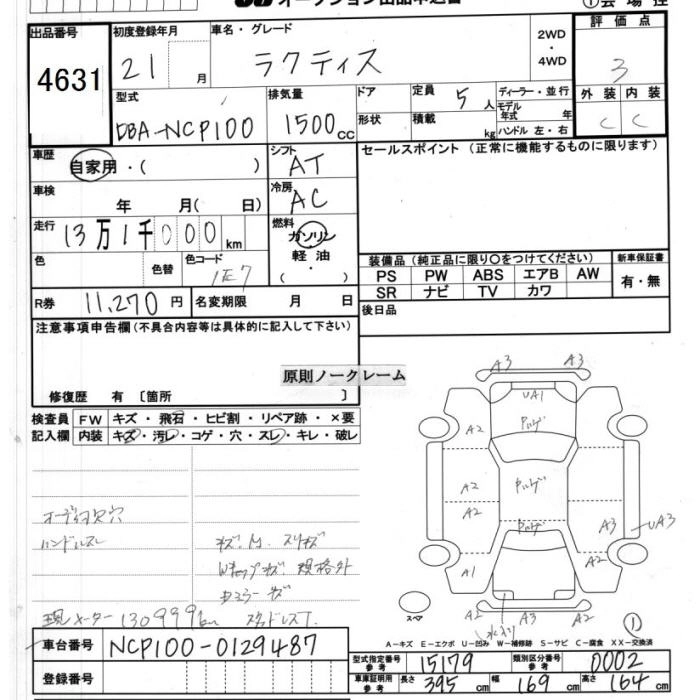 オークション出品申込書 ①会場控
出品番号 4631
初度登録年月 21 月
車名・グレード ラクティス
2WD・4WD
評価点 3
外装 C 内装 C
型式 DBA-NCP100
排気量 1500 CC
ドア 形状
定員 5人
積載 kg
ディーラー・並行
モデル年式 年
ハンドル 左・右
車歴 自家用・( )
シフト AT
セールスポイント(正常に機能するものに限ります)
車検 年 月( 日)
冷房 AC
走行 13万1千000km
燃料 ガソリン 軽油・( )
色 色替 カラーコード 1E7
装備品(純正品に限り○をつけてください) 新車保証書
PS PW ABS エアB AW 有・無
SR ナビ TV カワ
R券 11,270円 名変期限 月 日
後日品
注意事項申告欄(不具合内容等は具体的に記入して下さい)
原則ノークレーム
修復歴 有 〔箇所 〕
検査員記入欄
FW キズ・飛石・ヒビ割・リペア跡・×要
内装 キズ・汚レ・コゲ・穴・スレ・キレ・破レ
A3 A3
UA1
A2
A2
A2
A3 UA3
A1 A2
A2 A3 A2
ハンドルスレ
規格外
現メーター130999km スタッドレスT
スペア
①
A-キズ E-エクボ U-凹み W-補修跡 S-サビ C-腐食 XX-交換済
車台番号 NCP100-0129487
登録番号
型式指定番号 参考 15179 類別区分番号 参考 0002
車庫証明用 参考 長さ 395cm 幅 169cm 高さ 164cm